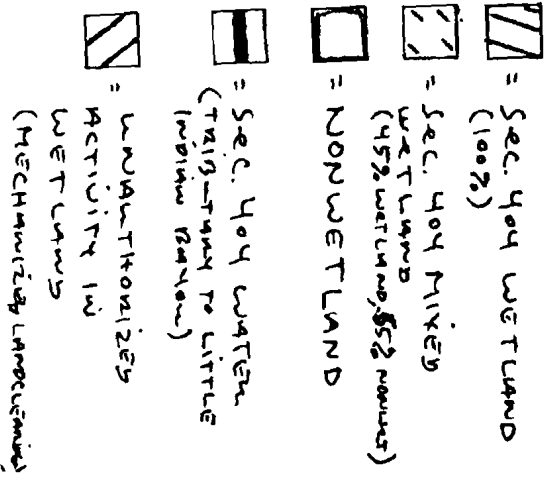 = SEC. 404 WETLAND
(100%)
= SEC. 404 MIXED
WETLAND
(45% WETLAND, 55% NONWET)
= NONWETLAND
= SEC. 404 WATER
(TRIBUTARY TO LITTLE
INDIAN BAYOU)
= UNAUTHORIZED
ACTIVITY IN
WETLAND
(MECHANIZED LANDCLEARING)